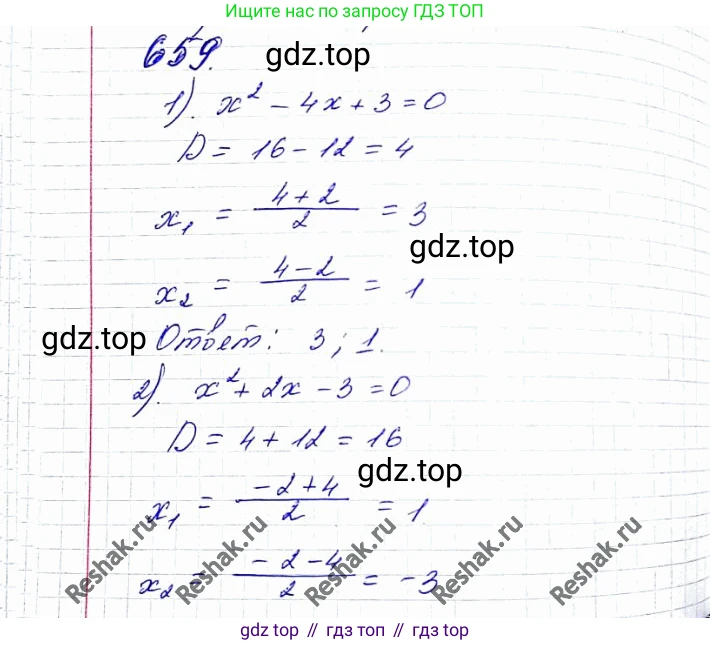 Ищите нас по запросу ГДЗ ТОП
659.
gdz.top
1). x² - 4x + 3 = 0
D = 16 - 12 = 4
x₁ = (4 + 2)/2 = 3
gdz.top
x₂ = (4 - 2)/2 = 1
gdz.top
Ответ: 3; 1.
2). x² + 2x - 3 = 0
D = 4 + 12 = 16
gdz.top
x₁ = (-2 + 4)/2 = 1
x₂ = (-2 - 4)/2 = -3
Reshak.ru Reshak.ru Reshak.ru Reshak.ru Reshak.ru
gdz top // гдз топ // gdz top